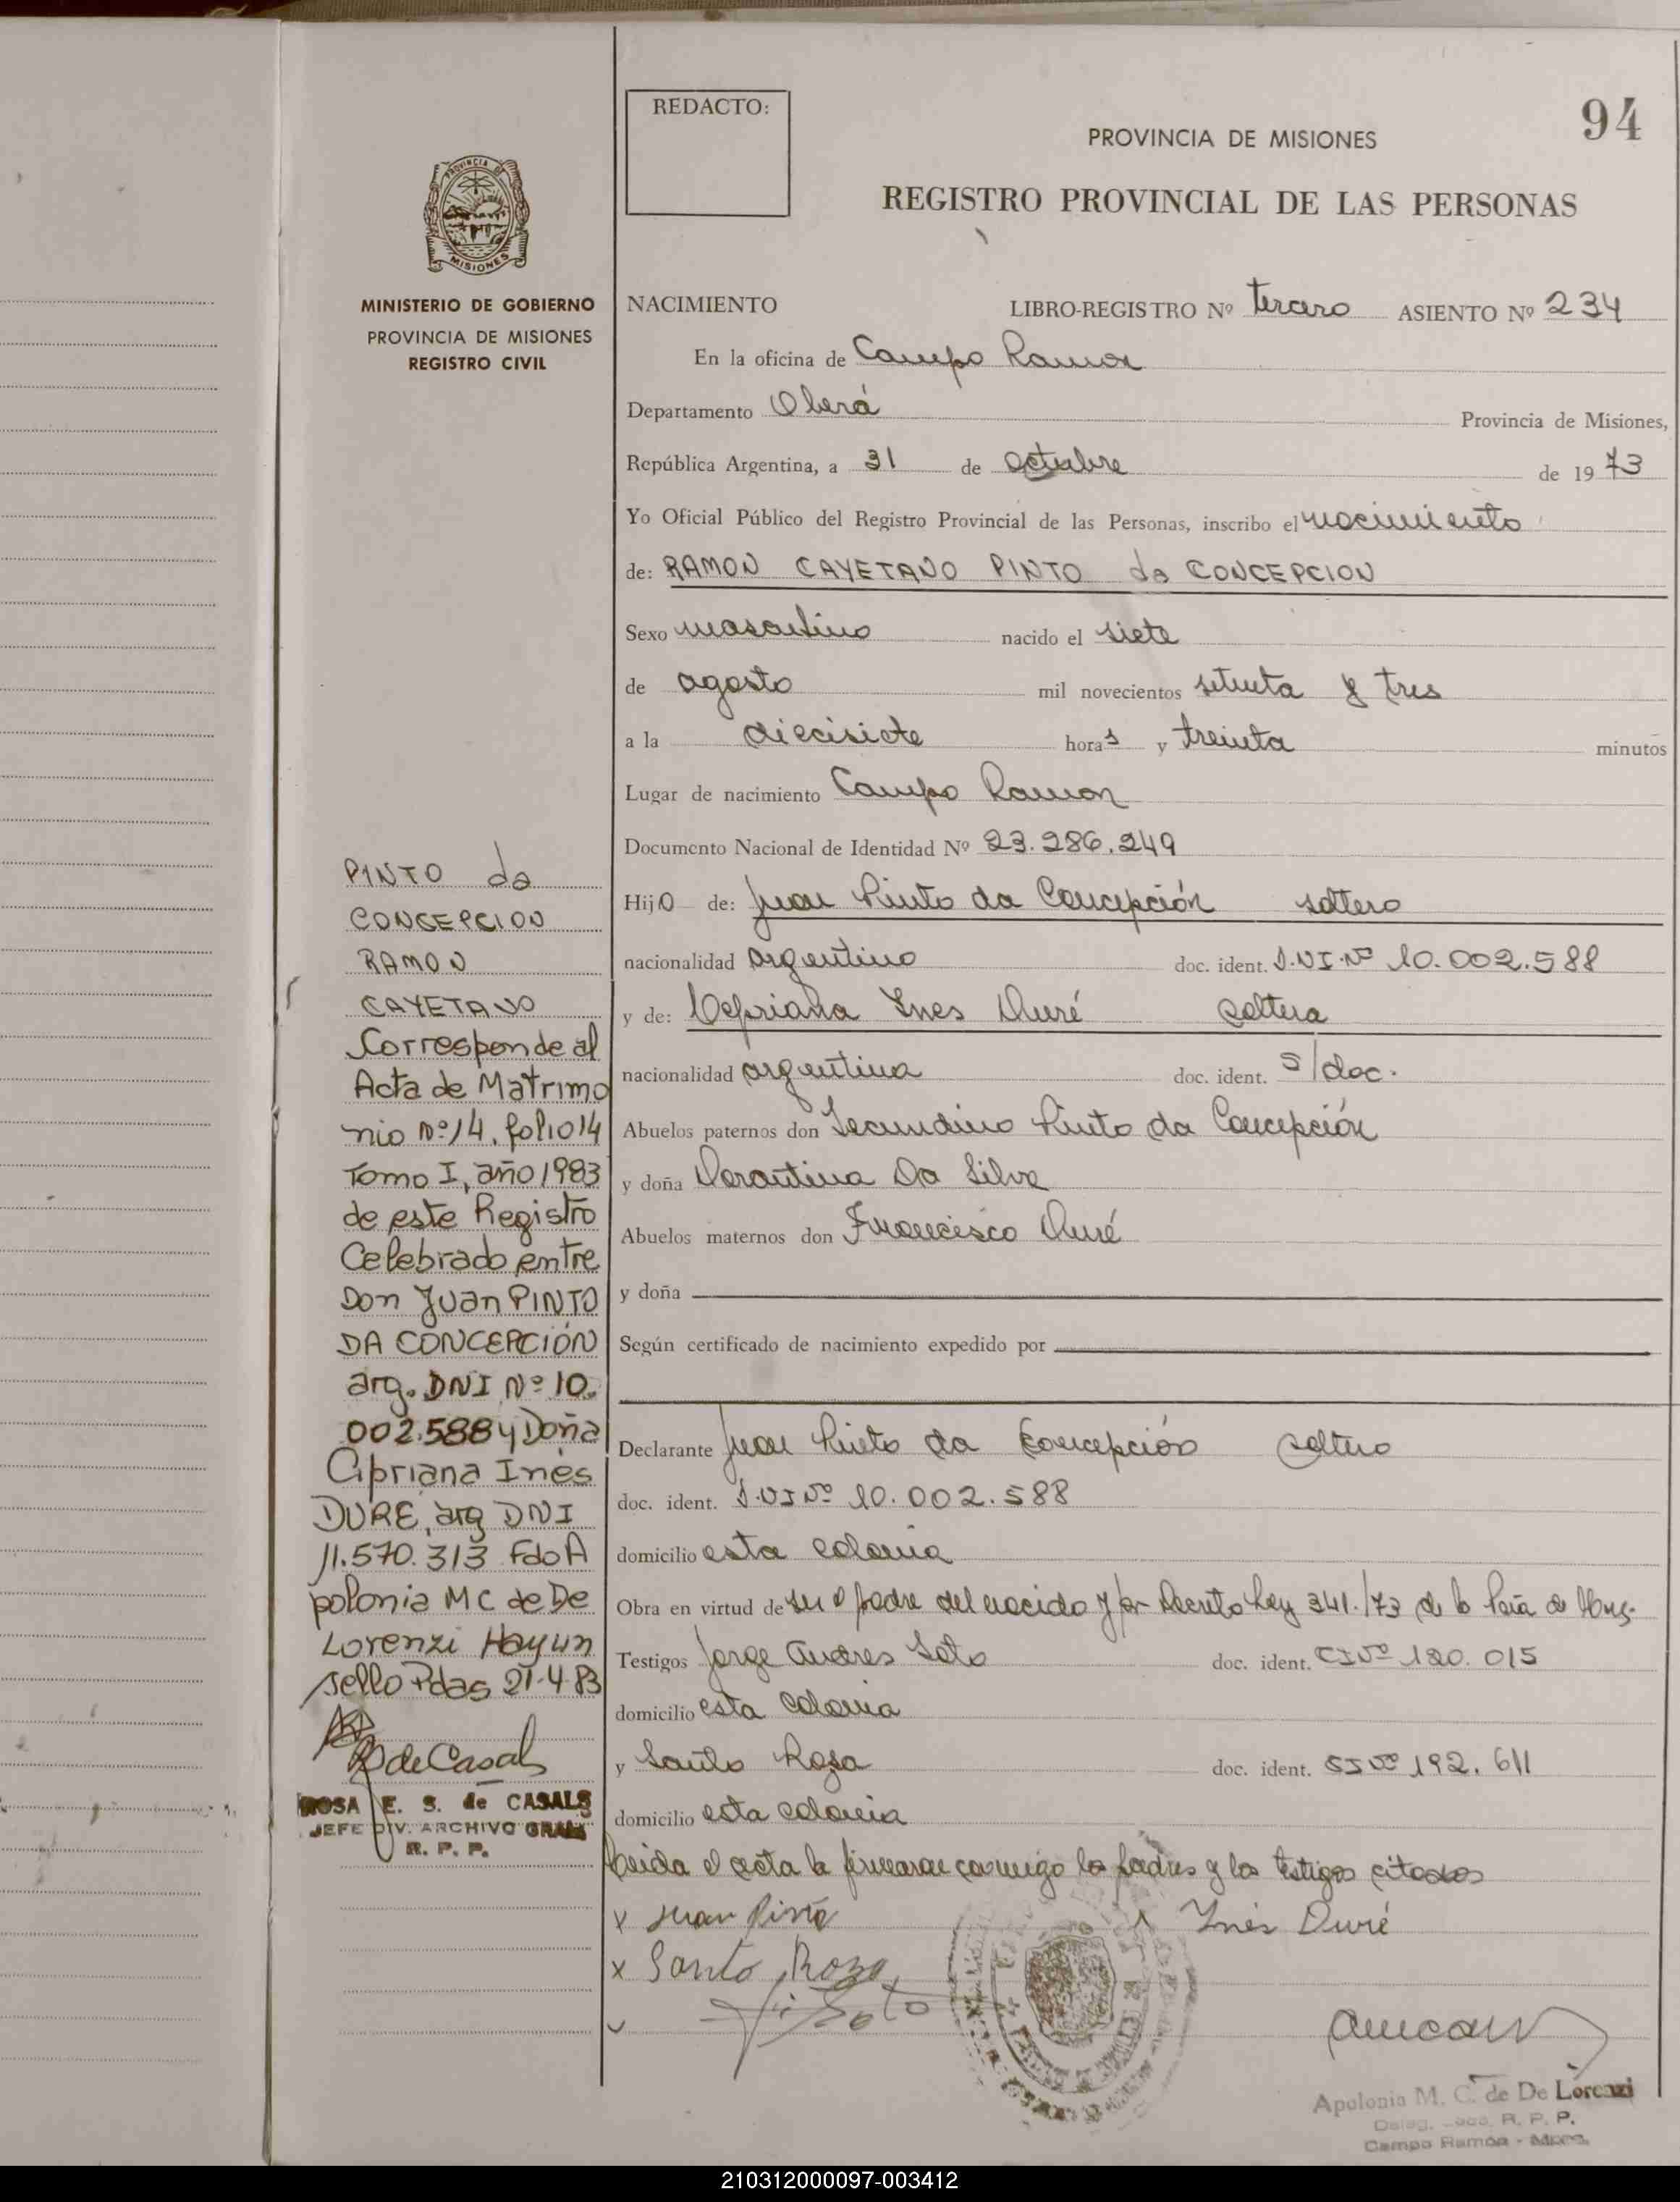 REDACTO:
94
PROVINCIA DE MISIONES
REGISTRO PROVINCIAL DE LAS PERSONAS
PROVINCIA DE
MISIONES
MINISTERIO DE GOBIERNO
PROVINCIA DE MISIONES
REGISTRO CIVIL
NACIMIENTO LIBRO-REGISTRO Nº tercero ASIENTO Nº 234
En la oficina de Campo Ramon
Departamento Oberá Provincia de Misiones,
República Argentina, a 31 de octubre de 1973
Yo Oficial Público del Registro Provincial de las Personas, inscribo el nacimiento
de: RAMON CAYETANO PINTO da CONCEPCION
Sexo masculino nacido el siete
de agosto mil novecientos setenta y tres
a la diecisiete horas y treinta minutos
Lugar de nacimiento Campo Ramon
Documento Nacional de Identidad Nº 23.286.249
Hijo de: Juan Pinto da Concepción soltero
nacionalidad argentino doc. ident. D.NI.Nº 10.002.588
y de: Cepriana Ines Duré soltera
nacionalidad argentina doc. ident. s/doc.
Abuelos paternos don Secundino Pinto da Concepción
y doña Da Silva
Abuelos maternos don Francisco Duré
y doña
Según certificado de nacimiento expedido por
Declarante Juan Pinto da Concepción soltero
doc. ident. D.NI Nº 10.002.588
domicilio esta colonia
Obra en virtud de ser el padre del nacido y por Decreto Ley 341./73 de la Pcia de Mnes.
Testigos Jorge Andres Soto doc. ident. CI Nº 120.015
domicilio esta colonia
y Santo Roza doc. ident. CI Nº 192.611
domicilio esta colonia
Leida el acta la firmaran conmigo los padres y los testigos citados
x Juan Pinto x Ynés Duré
x Santo Roza
Soto
Apolonia M. C. de De Lorenzi
Deleg. R. P. P.
Campo Ramón - Mnes.
PINTO da
CONCEPCION
RAMON
CAYETANO
Corresponde al
Acta de Matrimo
nio Nº 14, folio 14
Tomo I, año 1983
de este Registro
Celebrado entre
Don Juan PINTO
DA CONCEPCIÓN
arg. DNI Nº 10.
002.588 y Doña
Cipriana Inés
DURE, arg DNI
11.570.313 Fdo A
polonia MC de De
Lorenzi Hay un
sello Pdas 21-4-83
de Casals
ROSA E. S. de CASALS
JEFE DIV. ARCHIVO GRAL
R. P. P.
210312000097-003412